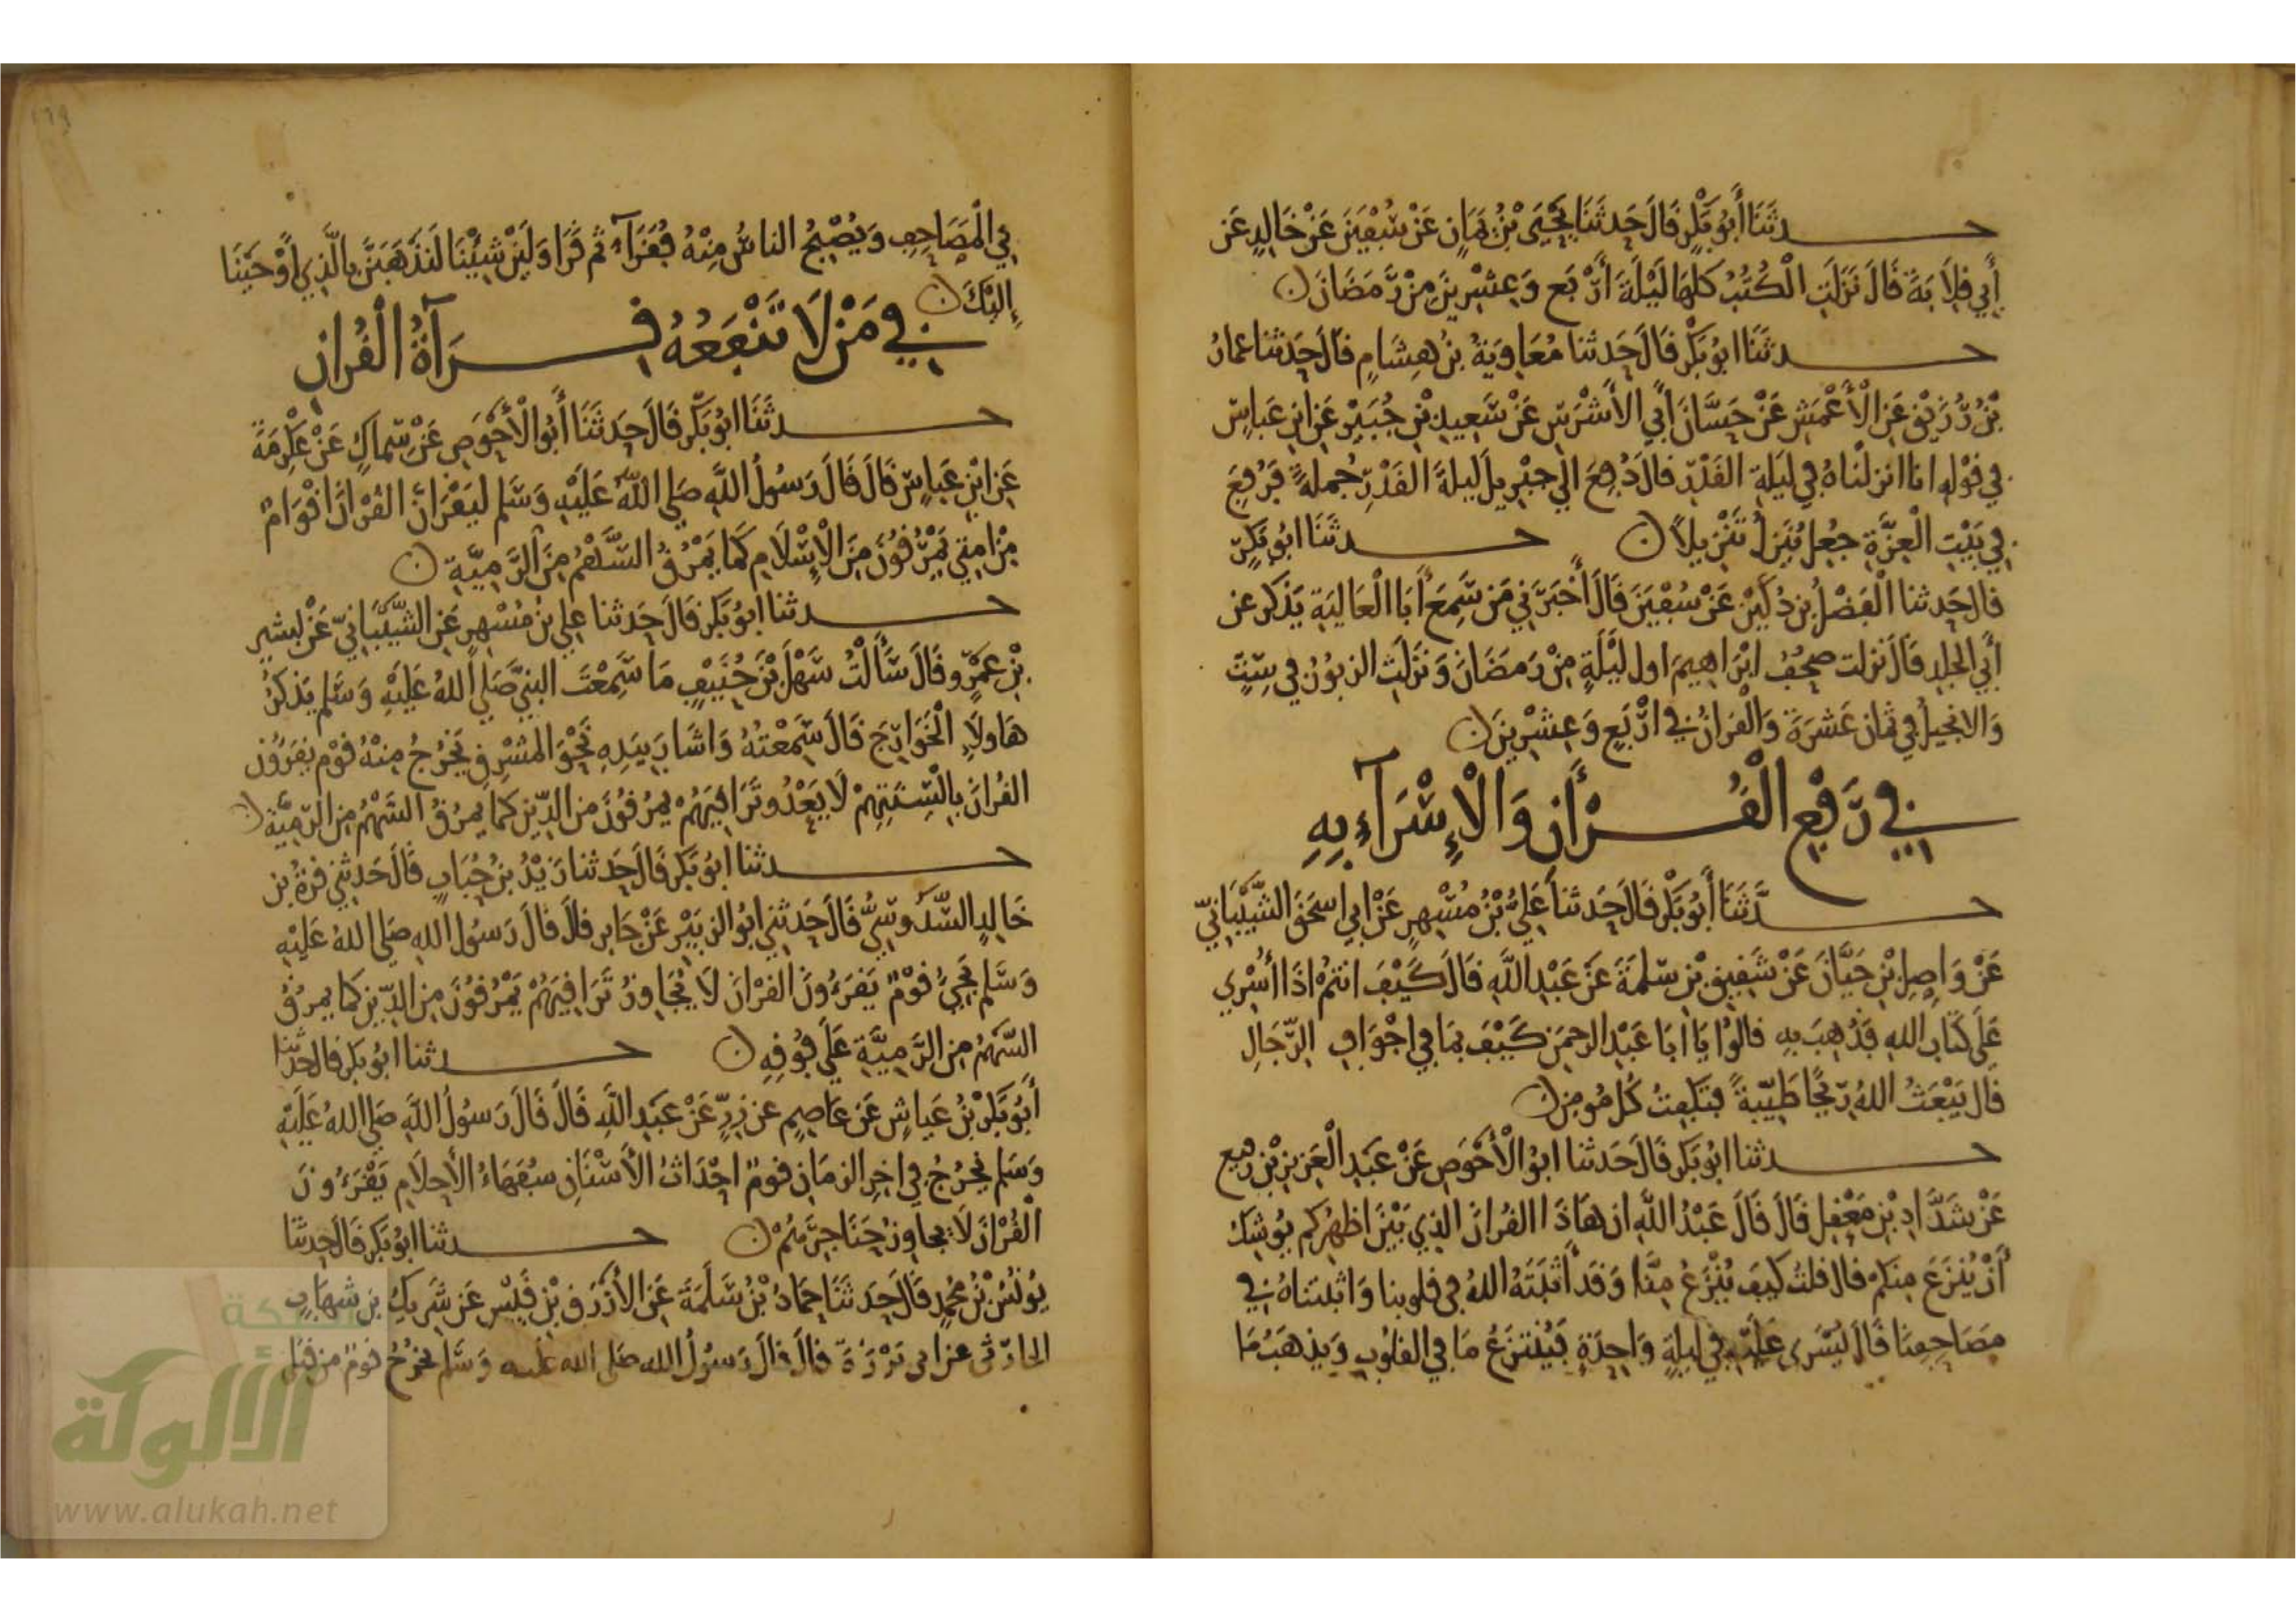 حدثنا أبو بكر قال حدثنا يحيى بن يمان عن سفين عن خالد عن
أبي قلابة قال نزلت الكتب كلها ليلة أربع وعشرين من رمضان
حدثنا ابو بكر قال حدثنا معاوية بن هشام قال حدثنا عمار
بن رزيق عن الأعمش عن حسان أبي الأشرس عن سعيد بن جبير عن ابن عباس
في قوله انا انزلناه في ليلة القدر قال دفع الى جبريل ليلة القدر جملة فرفع
في بيت العزة جعل ينزل تنزيلا حدثنا ابو بكر
قال حدثنا الفضل بن دكين عن سفين قال أخبرني من سمع أبا العالية يذكر عن
أبي الجلد قال نزلت صحف ابراهيم اول ليلة من رمضان ونزلت الزبور في ست
والانجيل في ثمان عشرة والقران في أربع وعشرين
في رفع القرأن والإسرآء به
حدثنا أبو بكر قال حدثنا علي بن مسهر عن ابي اسحق الشيباني
عن واصل بن حيان عن شقيق بن سلمة عن عبد الله قال كيف انتم اذا أسري
على كتاب الله فذهب به قالوا يا أبا عبد الرحمن كيف بما في اجواف الرجال
قال يبعث الله ريحا طيبة فتكفت كل مومن
حدثنا ابو بكر قال حدثنا ابو الأحوص عن عبد العزيز بن رفيع
عن شداد بن معقل قال قال عبد الله ان هاذا القران الذي بين اظهركم يوشك
أن ينزع منكم قال قلت كيف ينزع منا وقد أثبته الله في قلوبنا واثبتناه في
مصاحفنا قال يسرى عليه في ليلة واحدة فينتزع ما في القلوب ويذهب ما
١٦٩
في المصاحف ويصبح الناس منه فقرآء ثم قرا ولئن شئنا لنذهبن بالذي أوحينا
إليك
في من لا تنفعه قرآة القران
حدثنا ابو بكر قال حدثنا أبو الأحوص عن سماك عن عكرمة
عن ابن عباس قال قال رسول الله صلى الله عليه وسلم ليقرأن القرأن اقوام
من امتي يمرقون من الإسلام كما يمرق السهم من الرمية
حدثنا ابو بكر قال حدثنا علي بن مسهر عن الشيباني عن يسير
بن عمرو قال سألت سهل بن حنيف ما سمعت النبي صلى الله عليه وسلم يذكر
هاولاء الخوارج قال سمعته واشار بيده نحو المشرق يخرج منه قوم يقرون
القران بالسنتهم لا يعدو تراقيهم يمرقون من الدين كما يمرق السهم من الرمية
حدثنا ابو بكر قال حدثنا زيد بن حباب قال حدثني قرة بن
خالد السدوسي قال حدثني ابو الزبير عن جابر قال قال رسول الله صلى الله عليه
وسلم يجيء قوم يقرءون القران لا يجاوز تراقيهم يمرقون من الدين كما يمرق
السهم من الرمية على فوقه حدثنا ابو بكر قال حدثنا
أبو بكر بن عياش عن عاصم عن زر عن عبد الله قال قال رسول الله صلى الله عليه
وسلم يخرج في اخر الزمان قوم احداث الأسنان سفهاء الأحلام يقرءون
القرأن لا يجاوز حناجرهم حدثنا ابو بكر قال حدثنا
يونس بن محمد قال حدثنا حماد بن سلمة عن الأزرق بن قيس عن شريك بن شهاب
الحارثي عن ابي برزة قال قال رسول الله صلى الله عليه وسلم يخرج قوم من قبل
شبكة
الألوكة
www.alukah.net